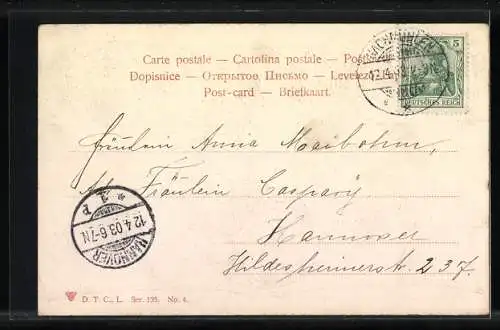 Carte postale — Cartolina postale — Post
Dopisnice — Открытое Письмо — Levelez
Post-card — Briefkaart.
5
DEUTSCHES REICH
Fräulein Anna Maibohm,
Fräulein Caspary
Hannover
Hildesheimerstr. 237.
* 1 P
12.4.03.6-7N
HANNOVER
D. T. C., L. Ser. 135. No. 4.